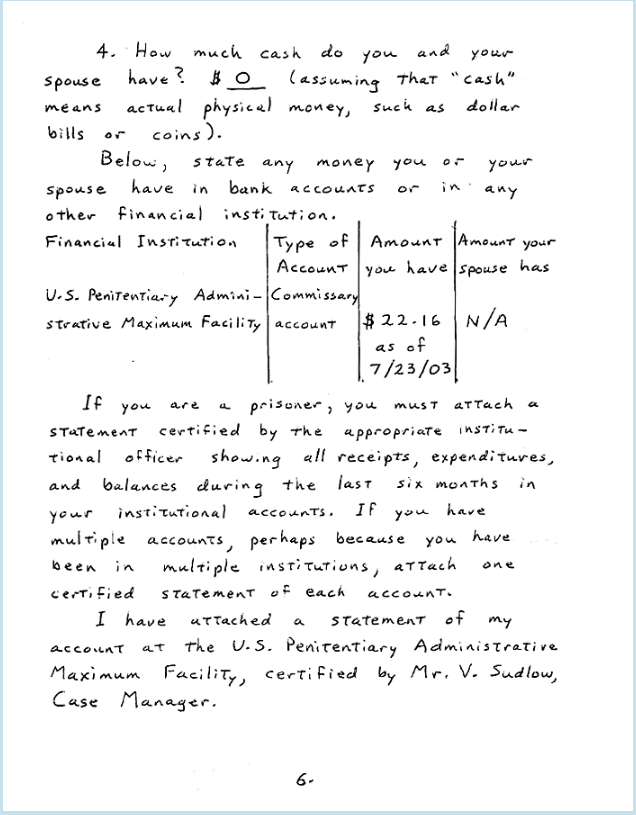 4. How much cash do you and your
spouse have? $ 0 (assuming that "cash"
means actual physical money, such as dollar
bills or coins).
Below, state any money you or your
spouse have in bank accounts or in any
other financial institution.
Financial Institution Type of Amount Amount your
Account you have spouse has
U.S. Penitentiary Admini- Commissary
strative Maximum Facility account $22.16 N/A
as of
7/23/03
If you are a prisoner, you must attach a
statement certified by the appropriate institu-
tional officer showing all receipts, expenditures,
and balances during the last six months in
your institutional accounts. If you have
multiple accounts, perhaps because you have
been in multiple institutions, attach one
certified statement of each account.
I have attached a statement of my
account at the U.S. Penitentiary Administrative
Maximum Facility, certified by Mr. V. Sudlow,
Case Manager.
6.